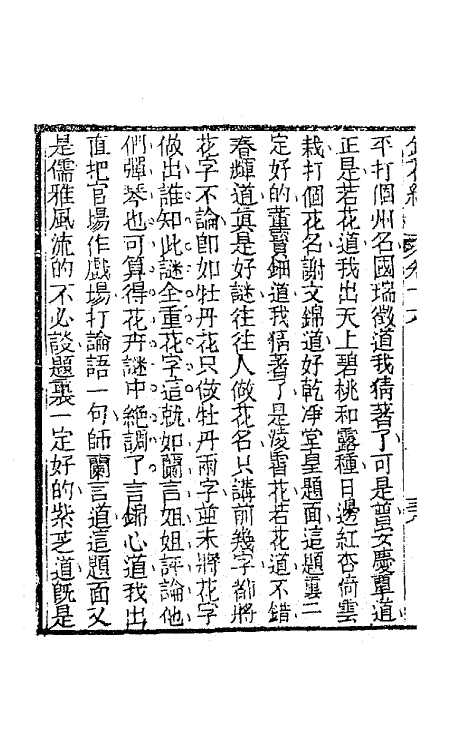 平打個州名國瑞徵道我猜著了可是普安慶覃道
正是若花道我出天上碧桃和露種日邊紅杏倚雲
栽打個花名謝文錦道好乾淨堂皇題面這題裏一
定好的董寶鈿道我猜著了是凌霄花若花道不錯
春輝道眞是好謎往往人做花名只講前幾字都將
花字不論卽如牡丹花只做牡丹兩字並未將花字
做出誰知此謎全重花字這就如蘭言姐姐評論他
們彈琴也可算得花卉謎中絶調了言錦心道我出
直把官場作戲場打論語一句師蘭言道這題面又
是儒雅風流的不必談題裏一定好的紫芝道旣是